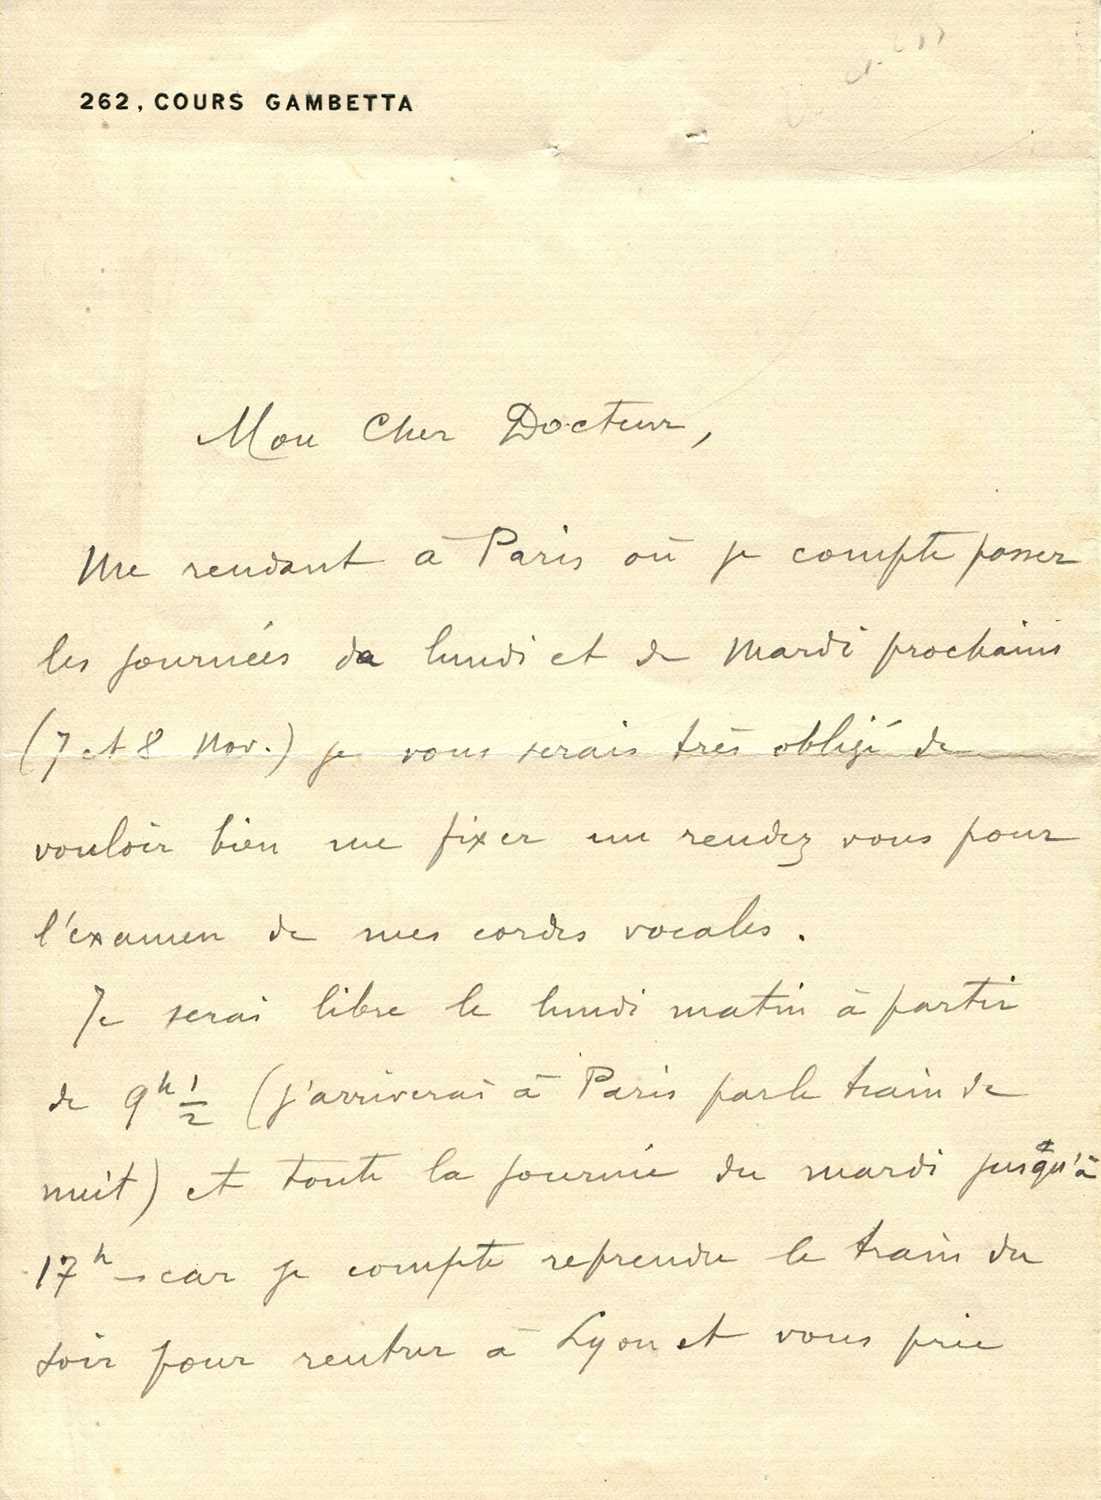 262, COURS GAMBETTA
Mon Cher Docteur,
Me rendant à Paris où je compte passer
les journées de lundi et de Mardi prochains
(7 et 8 Nov.) je vous serais très obligé de
vouloir bien me fixer un rendez vous pour
l'examen de mes cordes vocales.
Je serai libre le lundi matin à partir
de 9h 1/2 (j'arriverai à Paris par le train de
nuit) et toute la journée du mardi jusqu'à
17h - car je compte reprendre le train du
soir pour rentrer à Lyon et vous prie